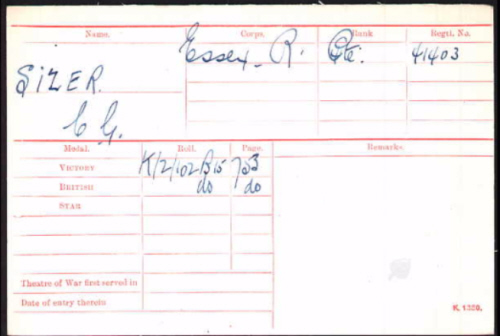 Name. Corps. Rank Regtl. No.
SIZER. Essex. R. Pte. 41403
C G.
Medal. Roll. Page. Remarks.
VICTORY K/2/102 B15 753
BRITISH do do
STAR
Theatre of War first served in
Date of entry therein
K. 1380.